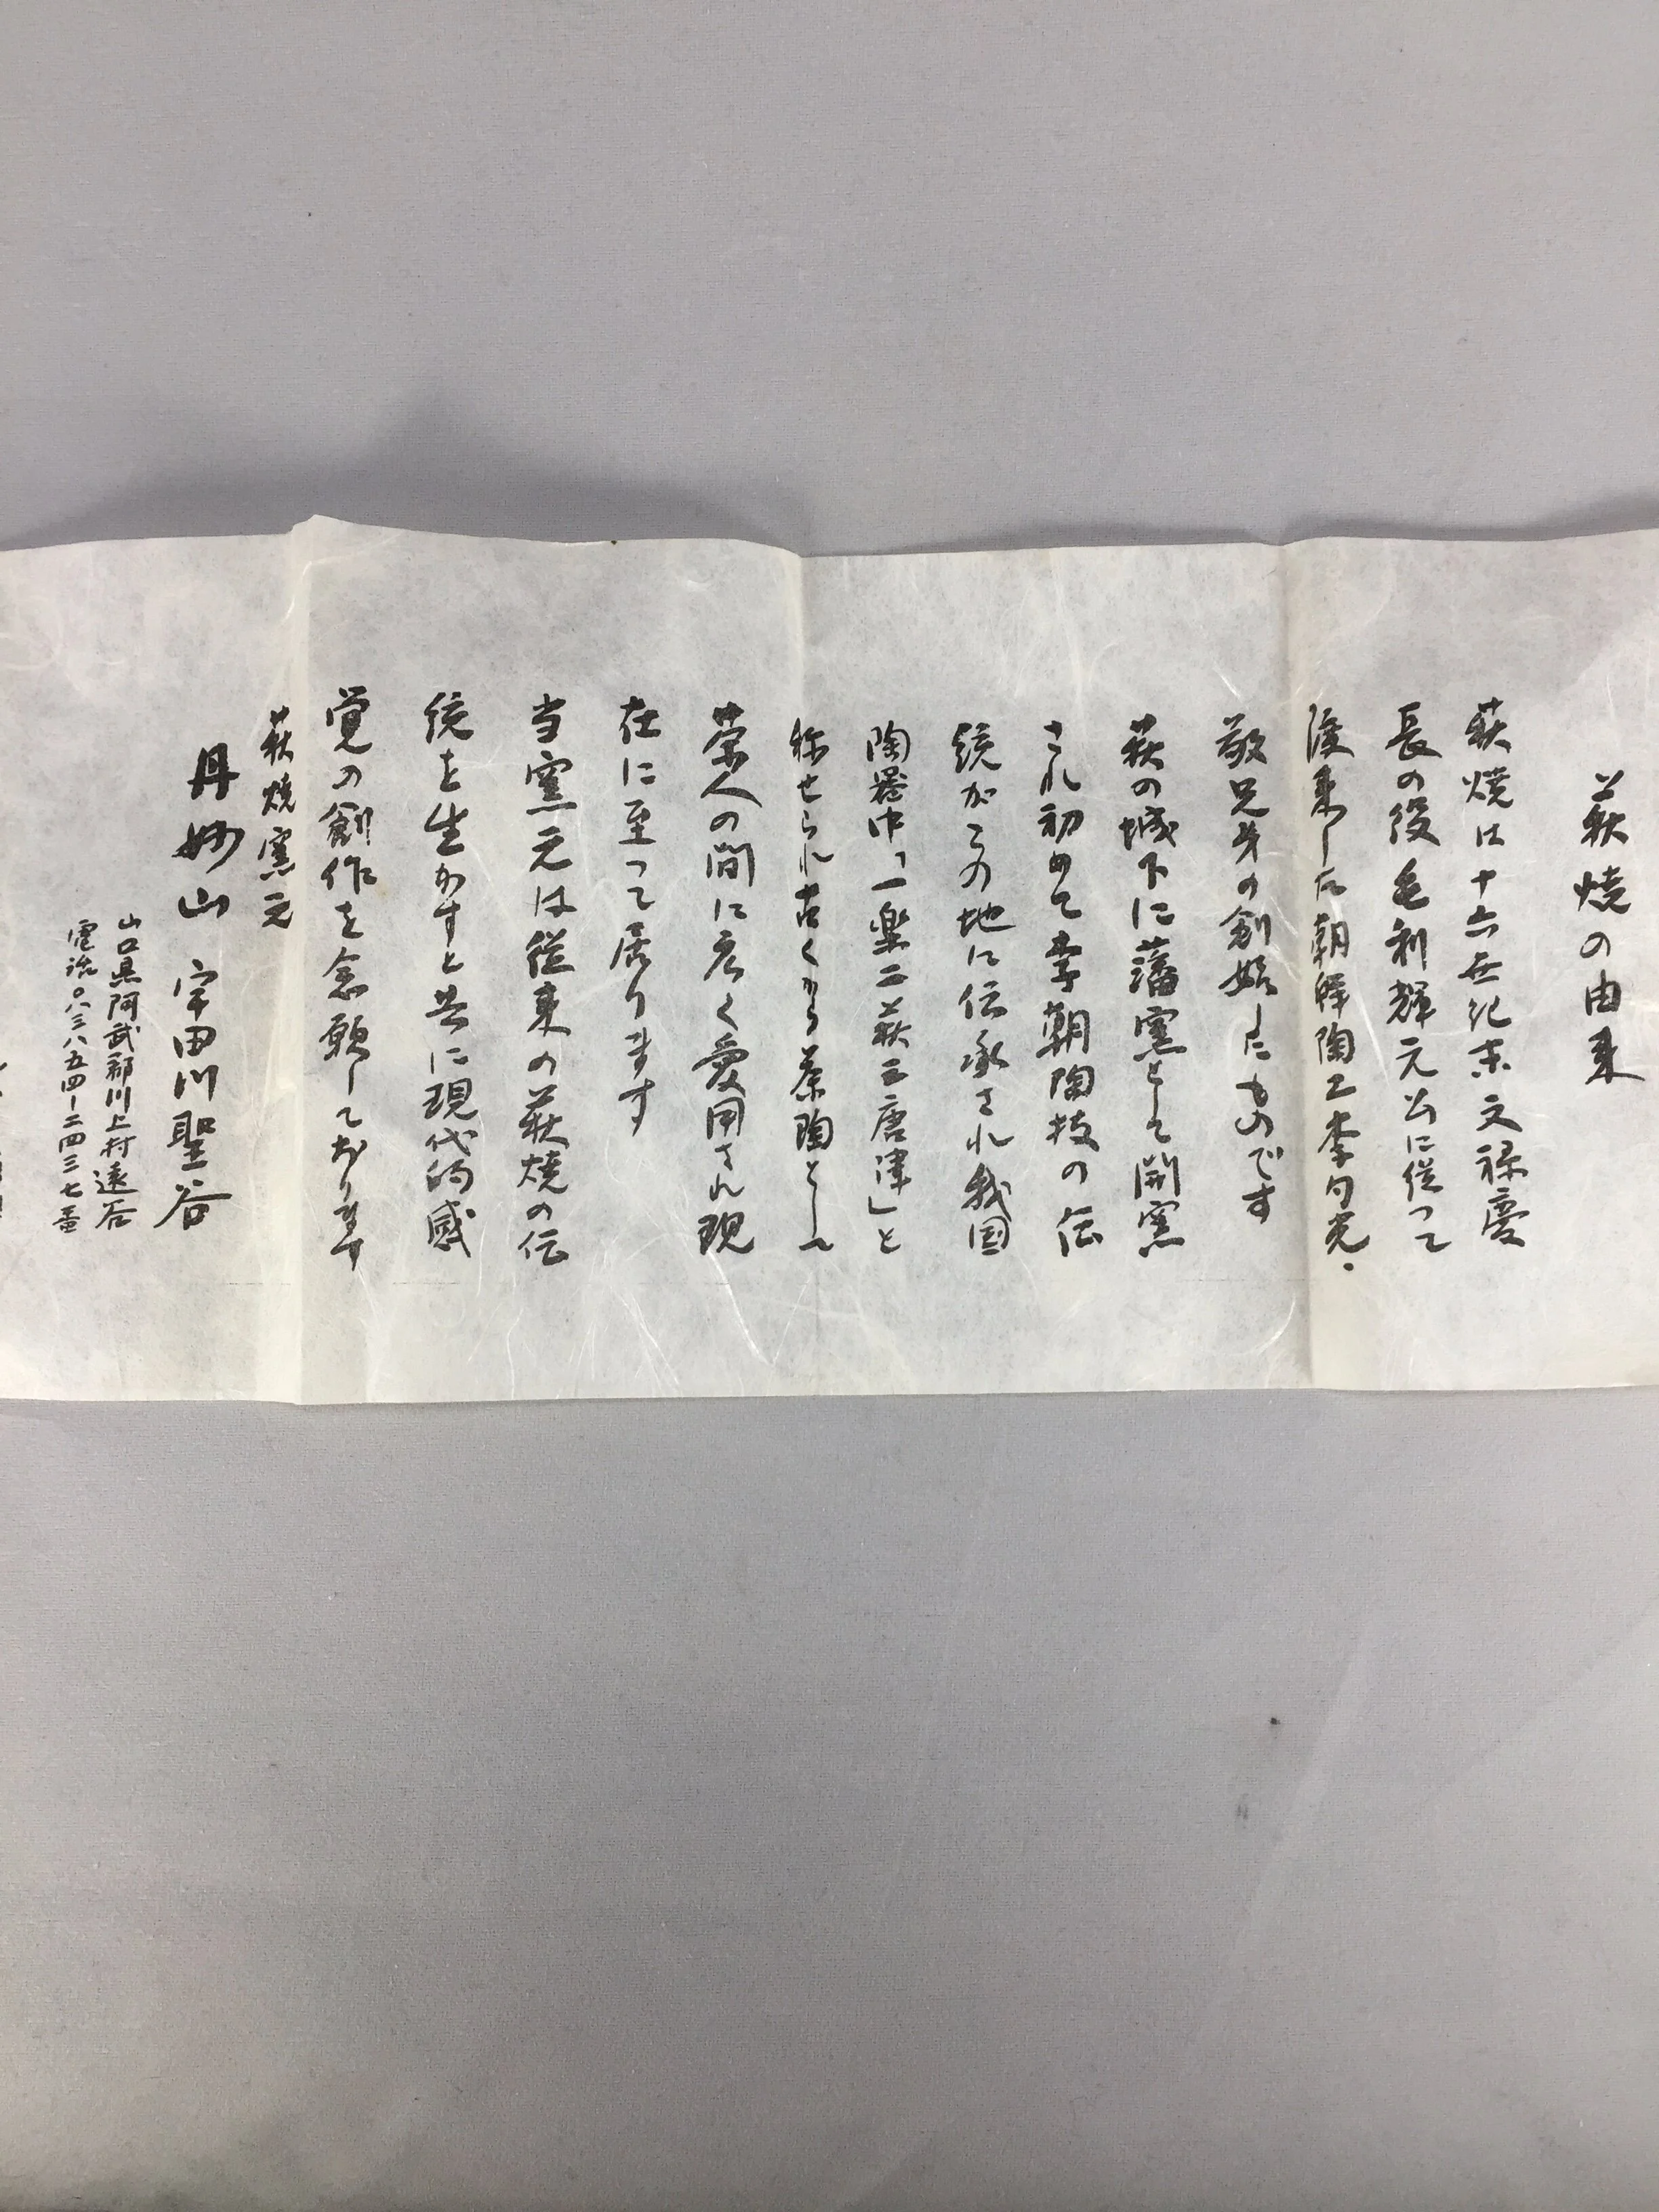 萩焼の由来
萩焼は十六世紀末文禄慶
長の役毛利輝元公に従って
渡来した朝鮮陶工李勺光・
敬兄弟の創始したものです
萩の城下に藩窯として開窯
され初めて李朝陶技の伝
統がこの地に伝承され我国
陶器中「一楽二萩三唐津」と
称せられ古くから茶陶として
茶人の間に広く愛用され現
在に至って居ります
当窯元は従来の萩焼の伝
統を生かすと共に現代的感
覚の創作を念願しております
萩焼窯元
丹妙山 宇田川聖谷
山口県阿武郡川上村遠谷
電話〇八三八五四―二四三七番